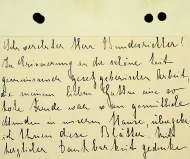 Sehr verehrter Herr Bundesrichter!
In Erinnerung an die schöne Zeit
gemeinsamer gesetzgeberischer Arbeit,
die meinem lieben Gatten eine so
hohe Freude war u. an gemütliche
Stunden in unserem Hause, übergebe
ich Ihnen diese Blätter. Mit
herzlicher Dankbarkeit gedenke